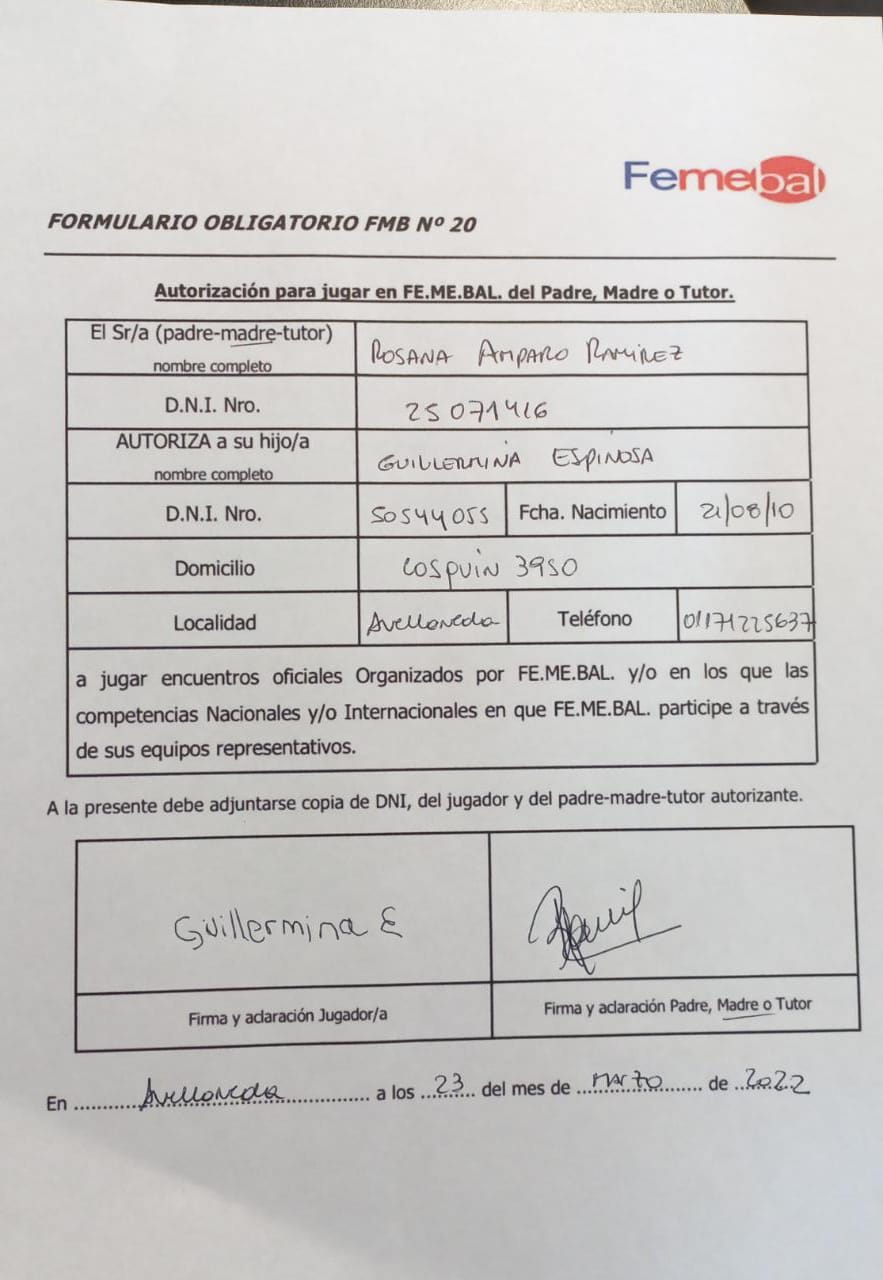 Femebal
FORMULARIO OBLIGATORIO FMB Nº 20
Autorización para jugar en FE.ME.BAL. del Padre, Madre o Tutor.
El Sr/a (padre-madre-tutor)
nombre completo
ROSANA AMPARO RAMIREZ
D.N.I. Nro. 25071416
AUTORIZA a su hijo/a
nombre completo
GUILLERMINA ESPINOSA
D.N.I. Nro. 50544055 Fcha. Nacimiento 21/08/10
Domicilio COSPUIN 3950
Localidad Avellaneda Teléfono 01171225637
a jugar encuentros oficiales Organizados por FE.ME.BAL. y/o en los que las
competencias Nacionales y/o Internacionales en que FE.ME.BAL. participe a través
de sus equipos representativos.
A la presente debe adjuntarse copia de DNI, del jugador y del padre-madre-tutor autorizante.
Guillermina E
Firma y aclaración Jugador/a Firma y aclaración Padre, Madre o Tutor
En Avellaneda a los 23 del mes de marzo de 2022